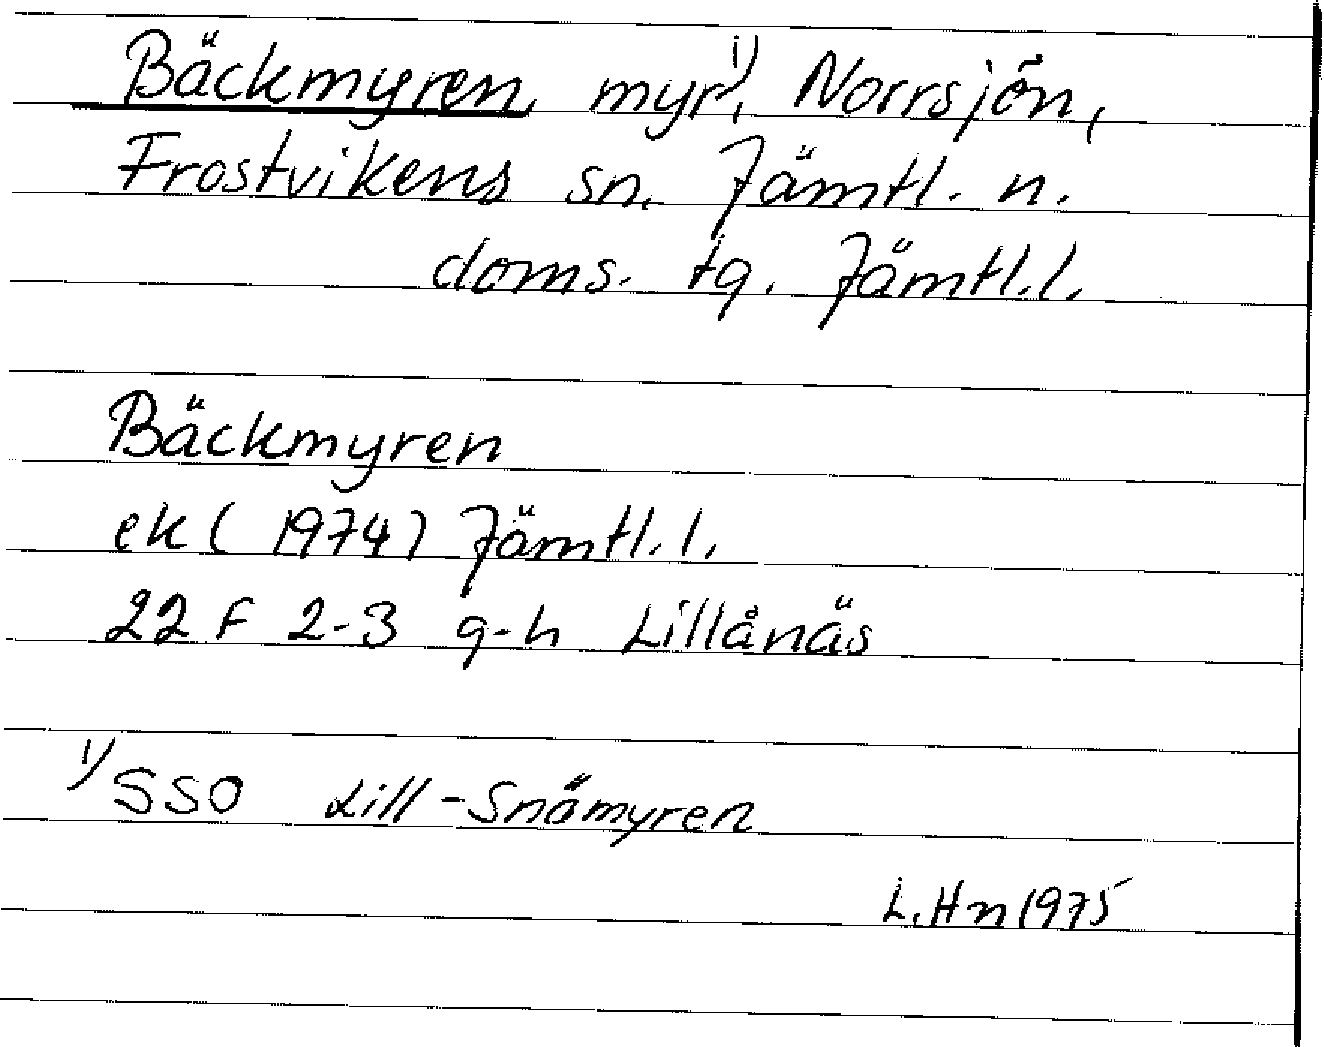 Bäckmyren, myr¹⁾, Norrsjön,
Frostvikens sn. Jämtl. n.
doms. tg. Jämtl.l.
Bäckmyren
ek (1974) Jämtl. l.
22 F 2-3 g-h Lillånäs
¹⁾ SSO Lill-Snåmyren
L.Hn 1975